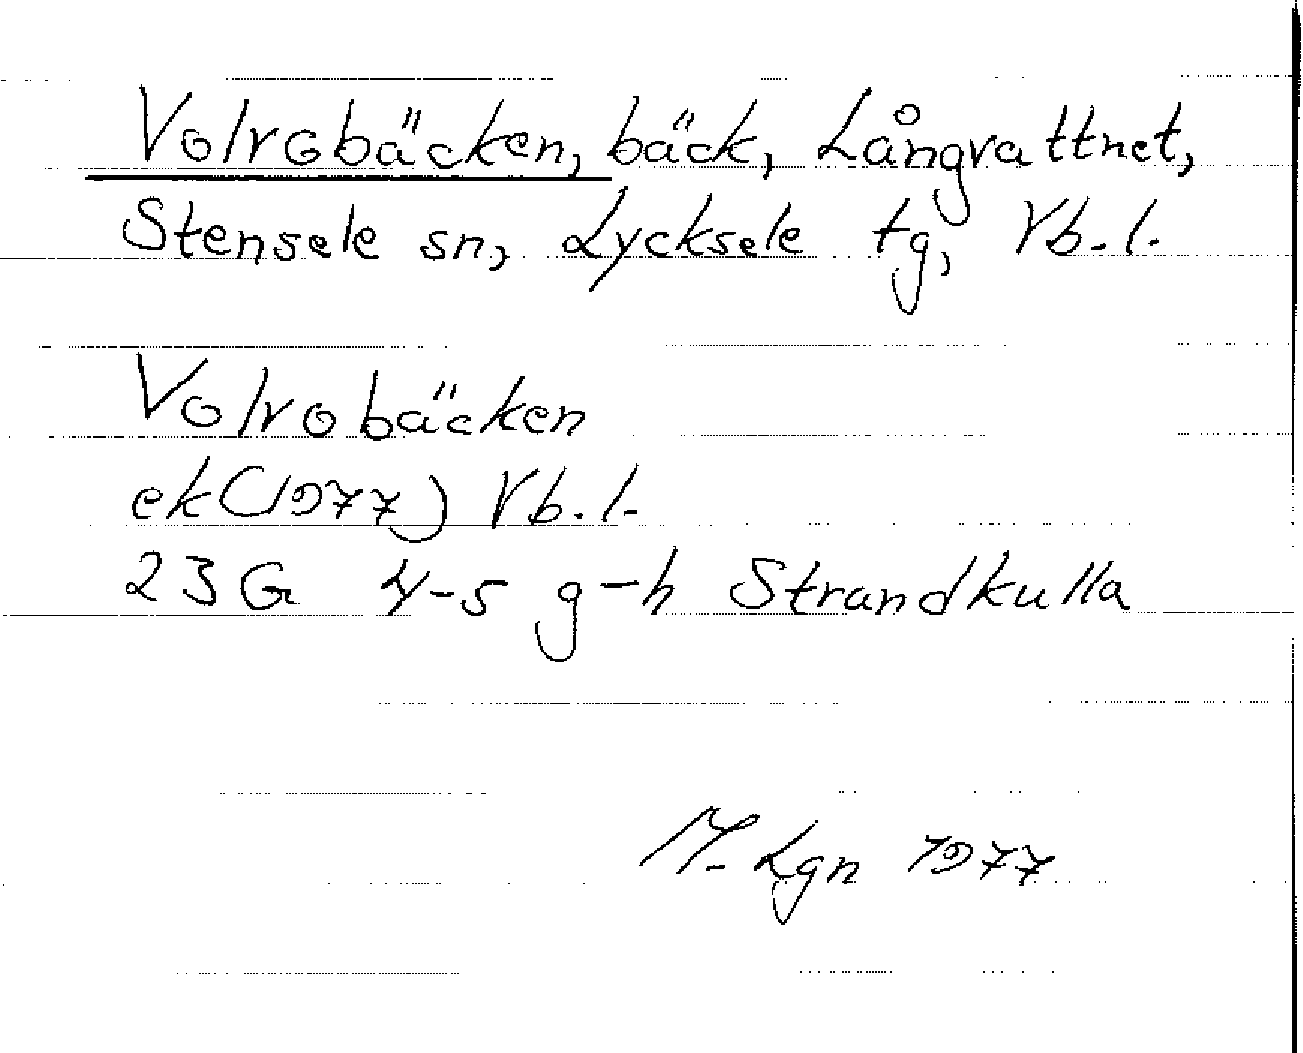 Volvobäcken, bäck, Långvattnet,
Stensele sn, Lycksele tg, Vb.l.
Volvobäcken
ek (1977) Vb.l.
23G 4-5 g-h Strandkulla
M. Lgn 1977